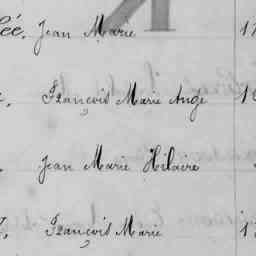 ée, Jean Marie 1
François Marie Ange 1
Jean Marie Hilaire
François Marie 1